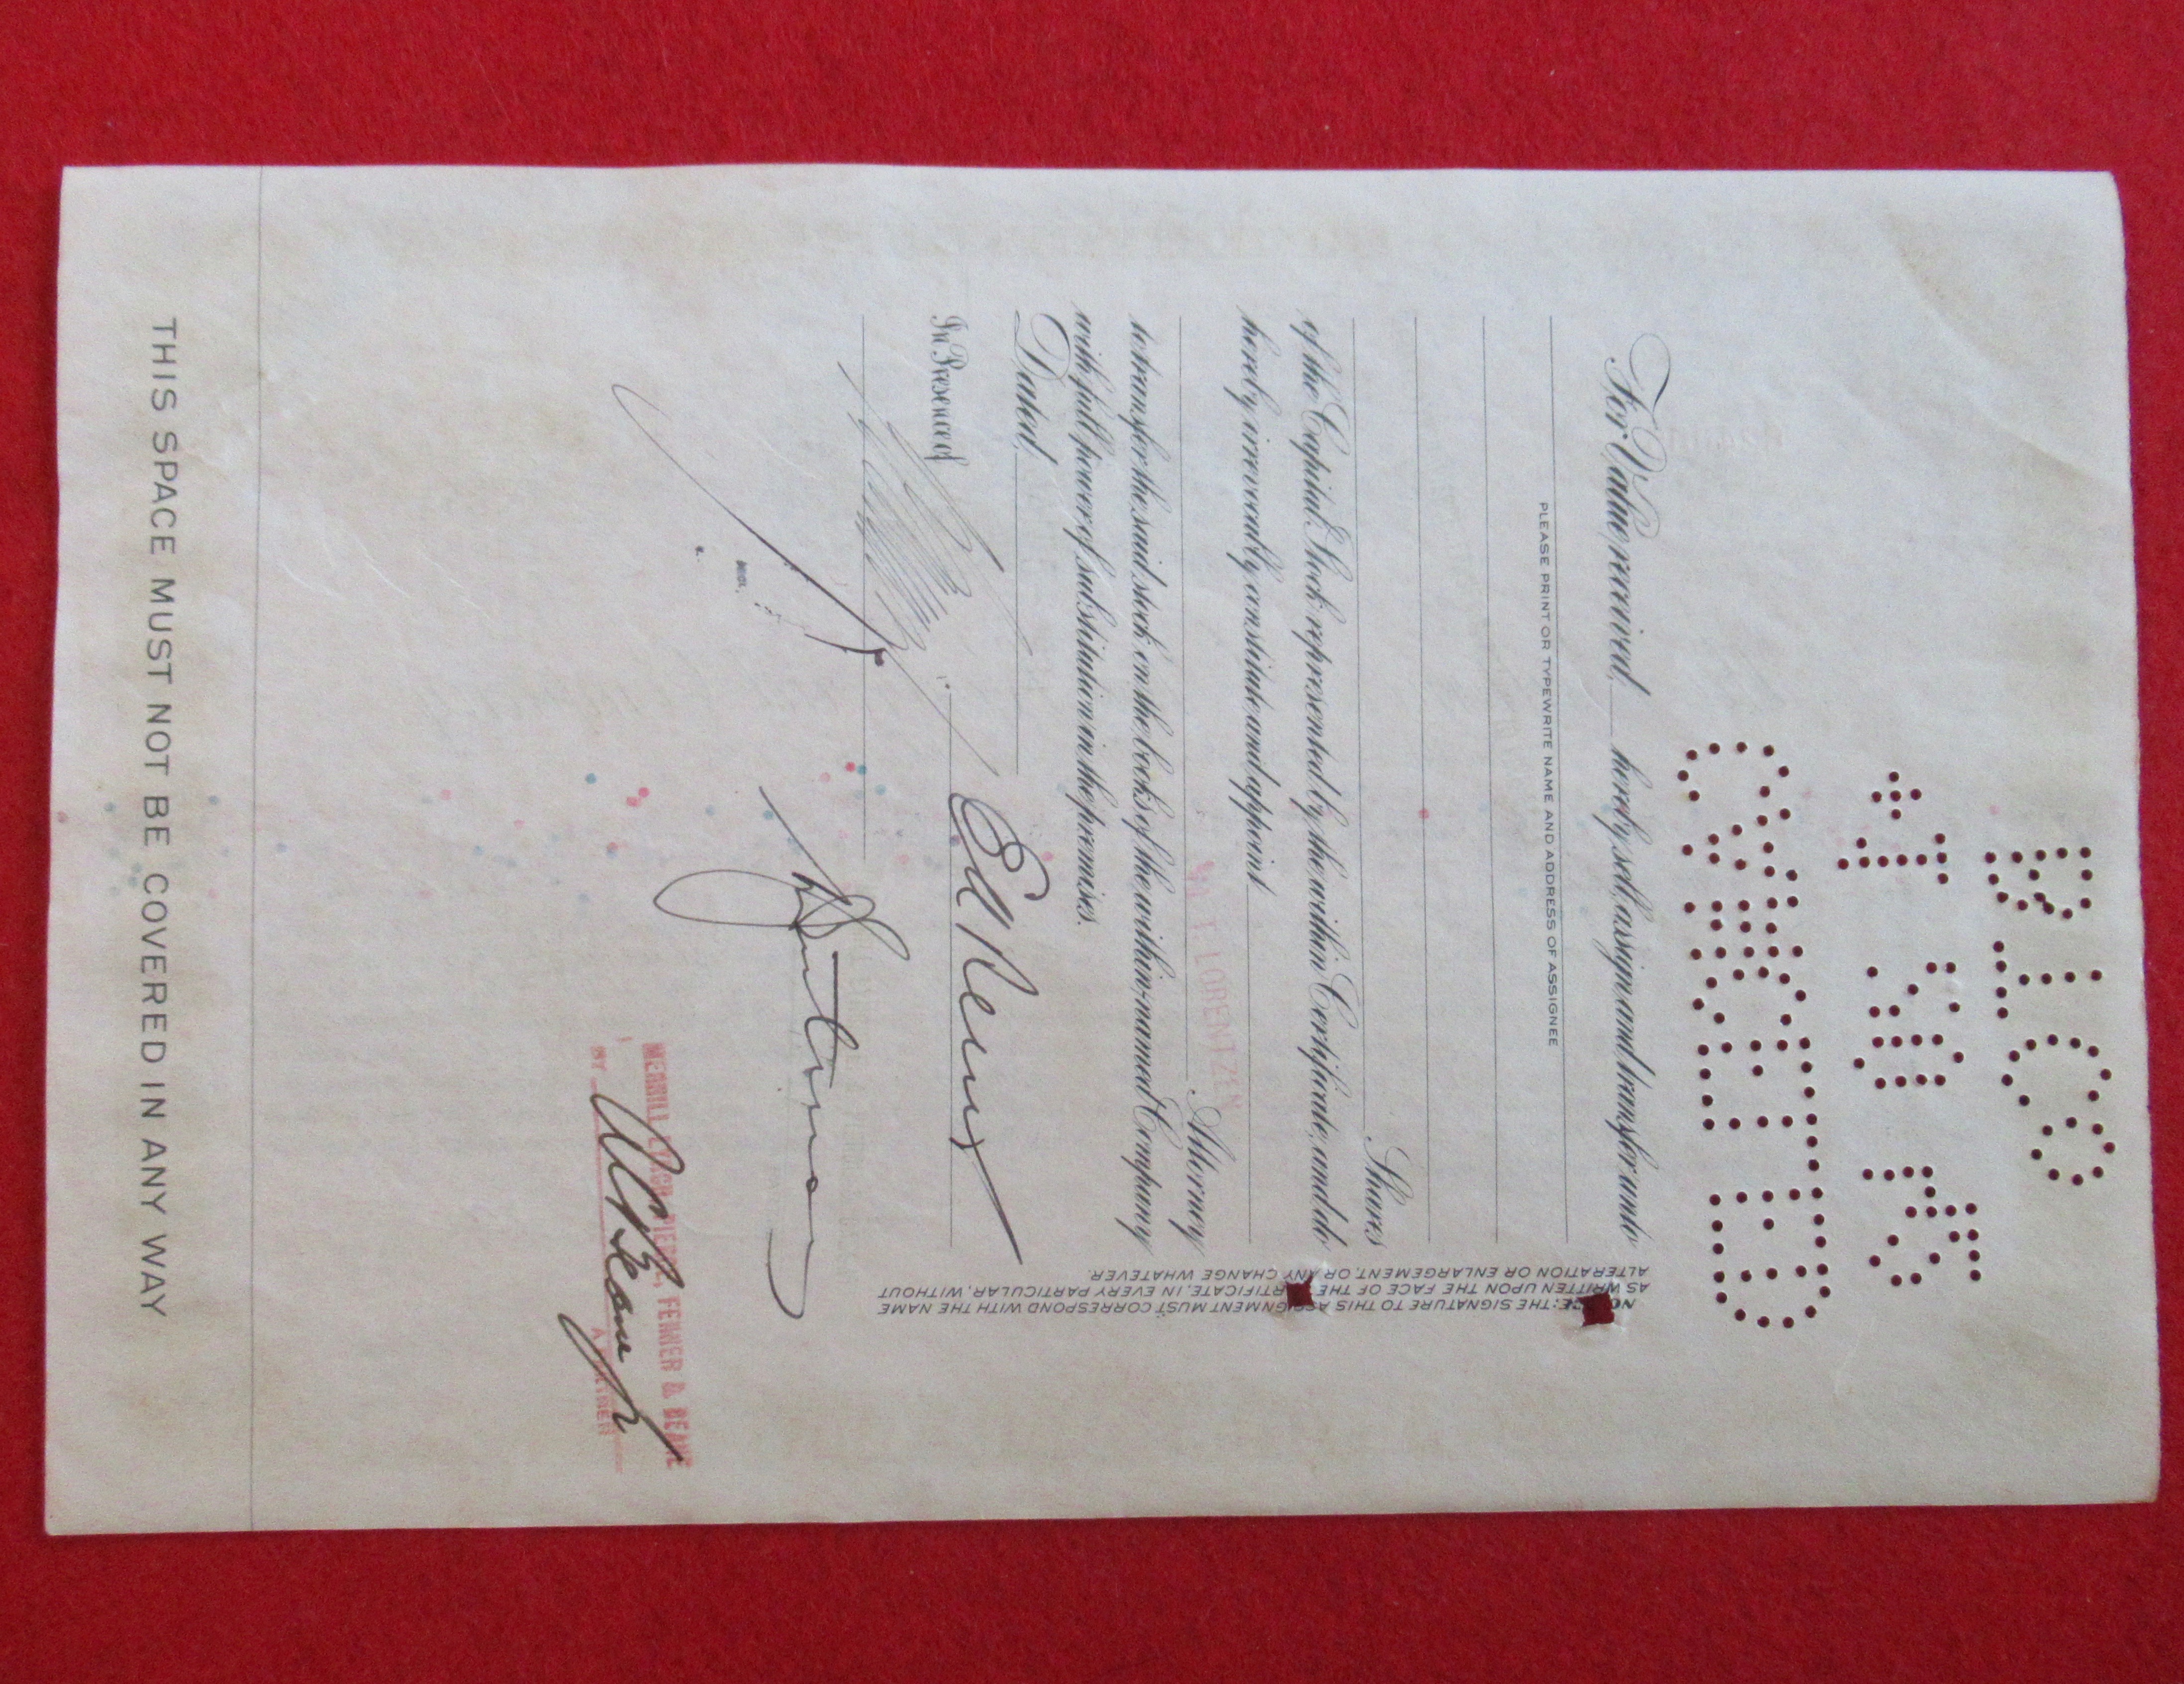 For Value received, hereby sell, assign and transfer unto
PLEASE PRINT OR TYPEWRITE NAME AND ADDRESS OF ASSIGNEE
Shares
of the Capital Stock represented by the within Certificate, and do
hereby irrevocably constitute and appoint
Attorney
to transfer the said stock on the books of the within-named Company
with full power of substitution in the premises.
Dated,
In Presence of
MERRILL LYNCH, PIERCE, FENNER & BEANE
BY
A PARTNER
THIS SPACE MUST NOT BE COVERED IN ANY WAY
NOTICE: THE SIGNATURE TO THIS ASSIGNMENT MUST CORRESPOND WITH THE NAME
AS WRITTEN UPON THE FACE OF THE CERTIFICATE, IN EVERY PARTICULAR, WITHOUT
ALTERATION OR ENLARGEMENT, OR ANY CHANGE WHATEVER.